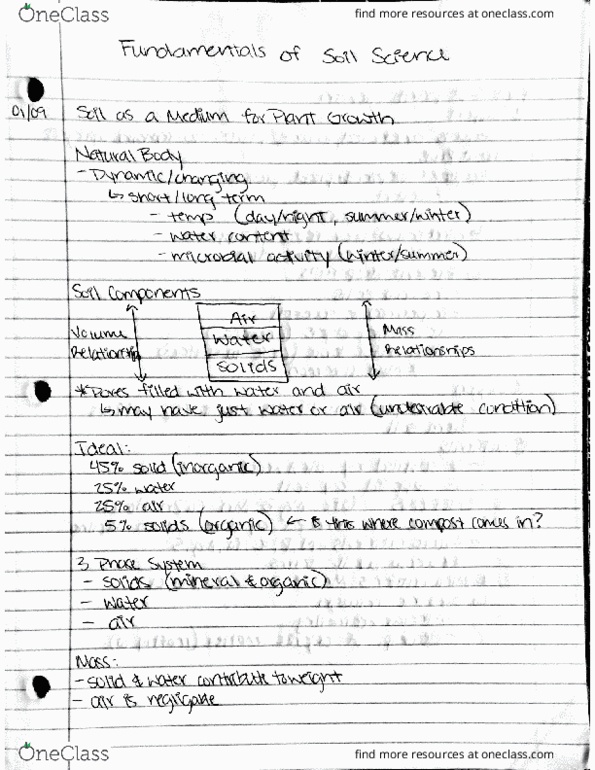 OneClass
find more resources at oneclass.com
Fundamentals of Soil Science
01/09
Soil as a Medium for Plant Growth
Natural Body
- Dynamic/changing
↳ short/long term
- temp (day/night, summer/winter)
- water content
- microbial activity (winter/summer)
Soil Components
Air
Volume
Water
Mass
Relationship
Solids
Relationships
*Pores filled with water and air
↳ may have just water or air (undesirable condition)
Ideal:
45% solid (inorganic)
25% water
25% air
5% solids (organic) ← is this where compost comes in?
3 Phase System
- solids (mineral & organic)
- water
- air
Mass:
- solid & water contribute to weight
- air is negligable
OneClass
find more resources at oneclass.com